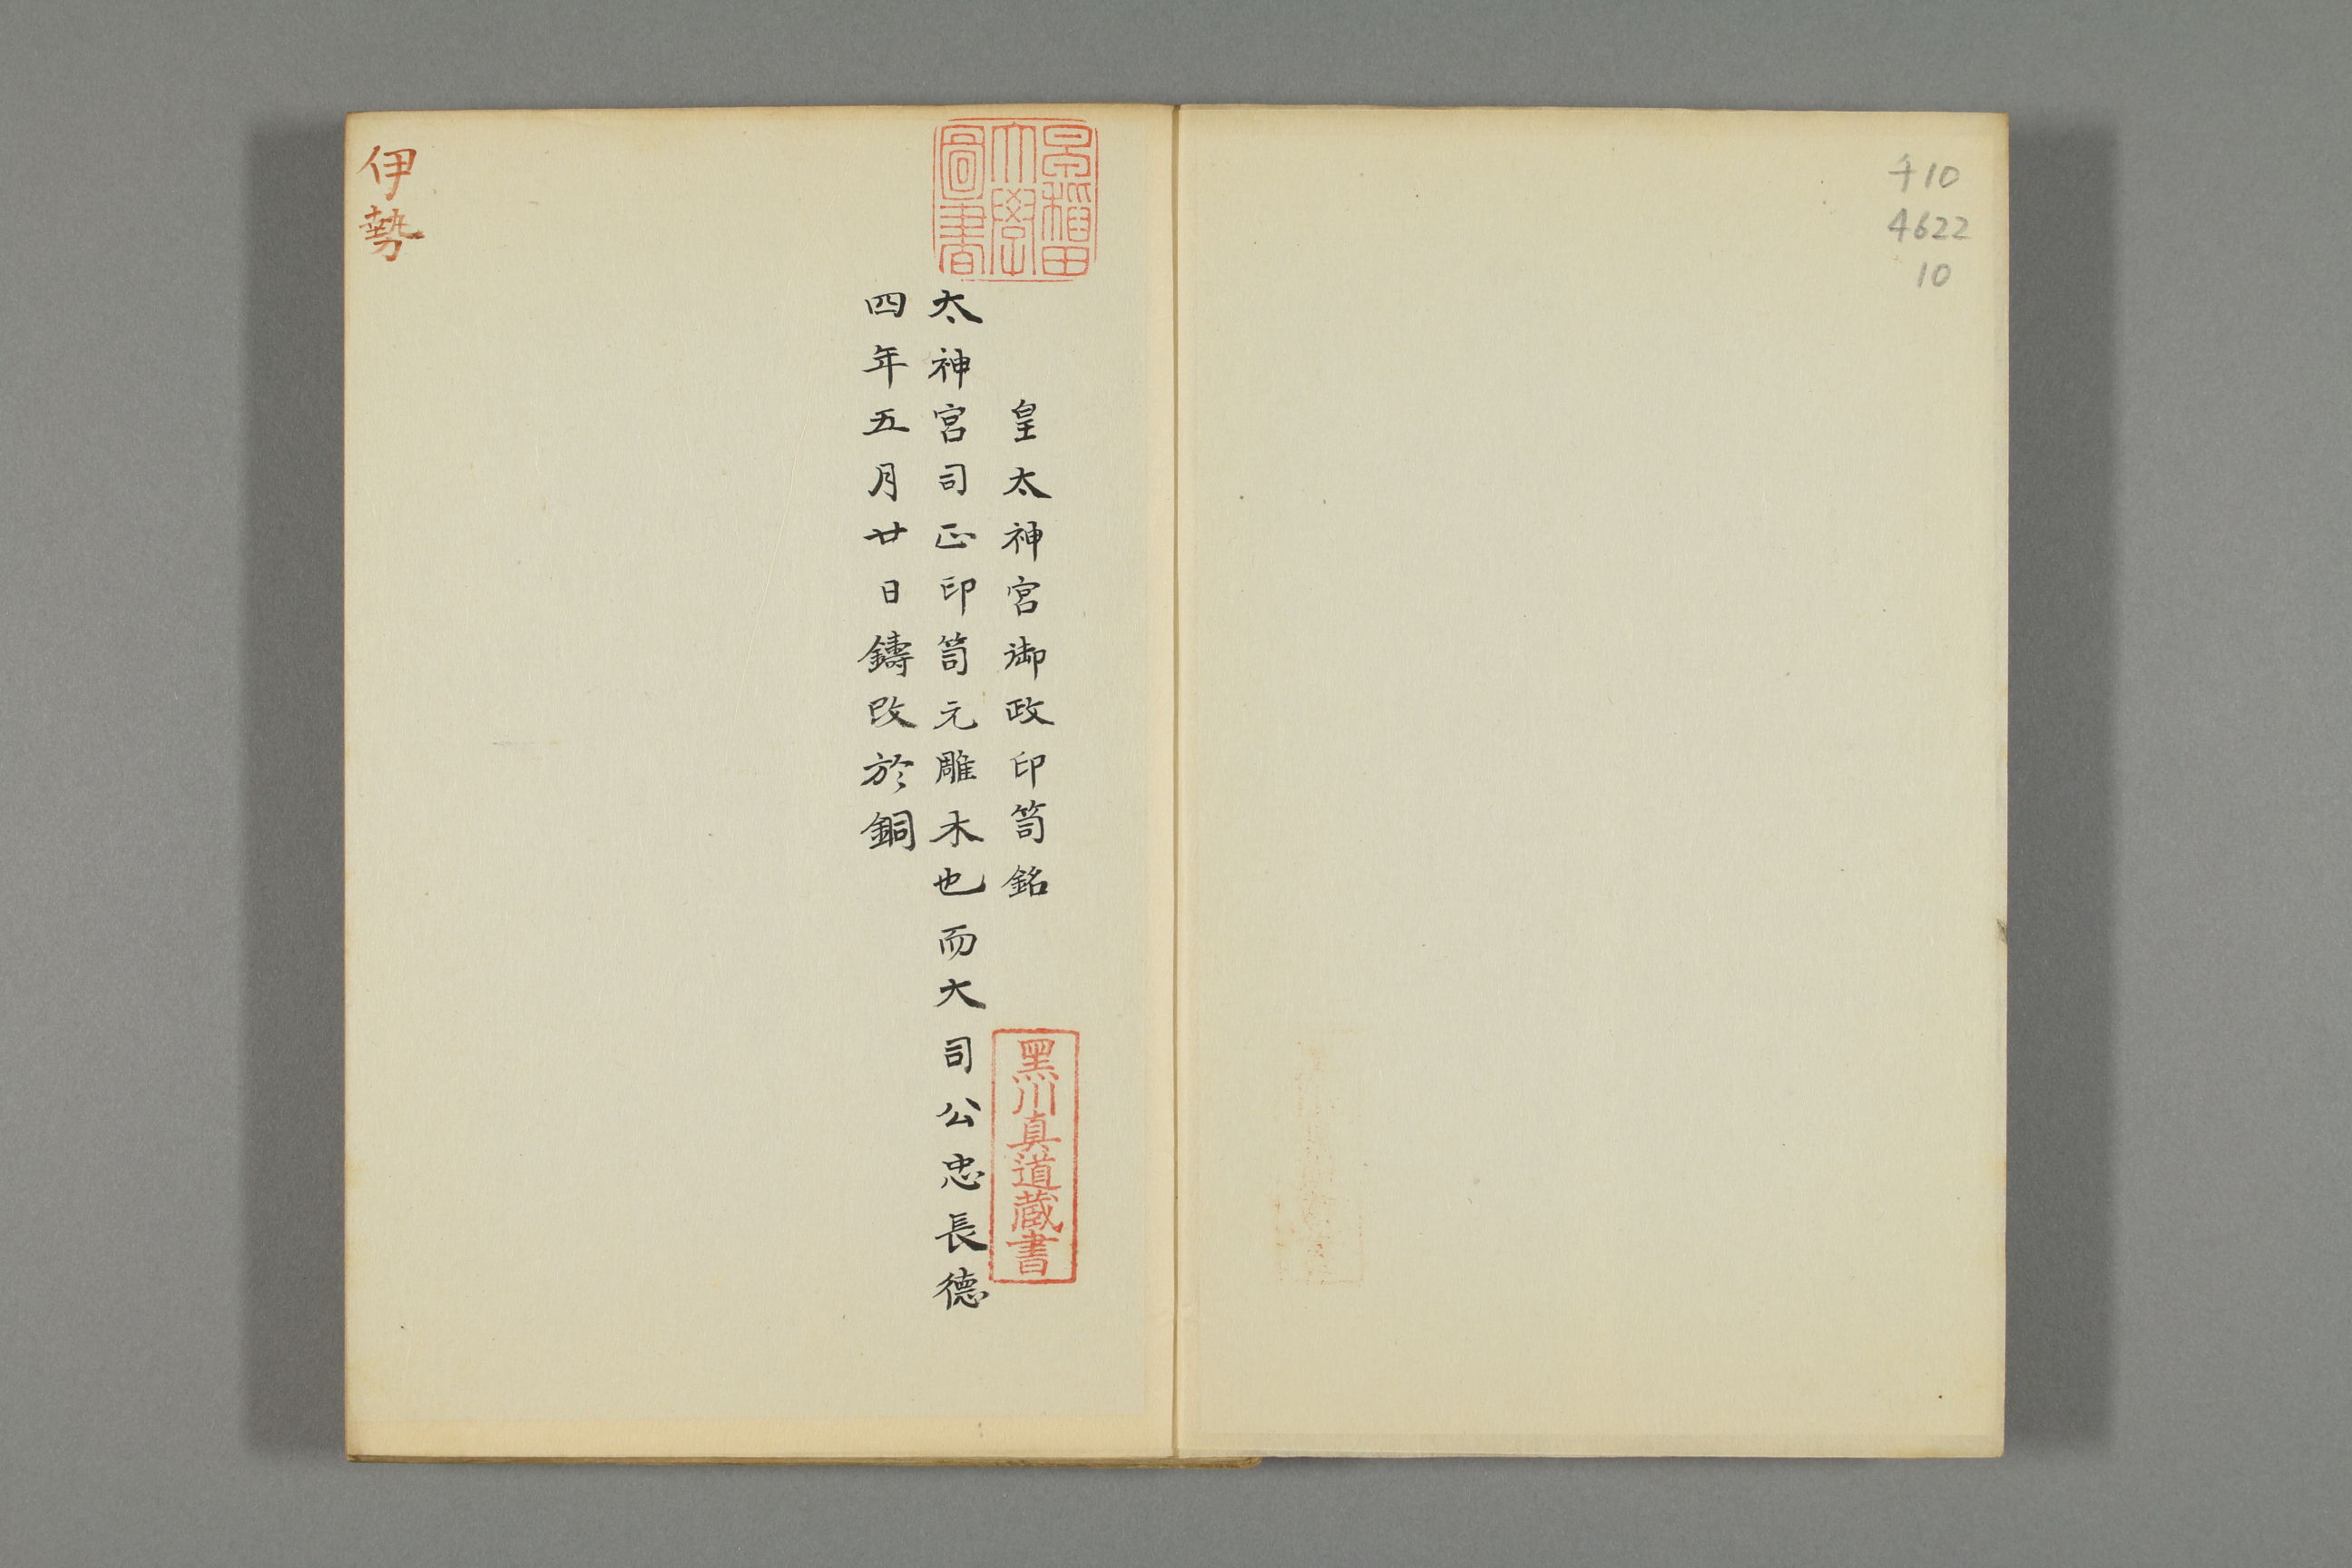 チ10
4622
10
早稲田
大學
圖書
皇太神宮御政印笥銘
黒川真道蔵書
太神宮司正印笥元雕木也而大司公忠長德
四年五月廿日鑄改於銅
伊勢